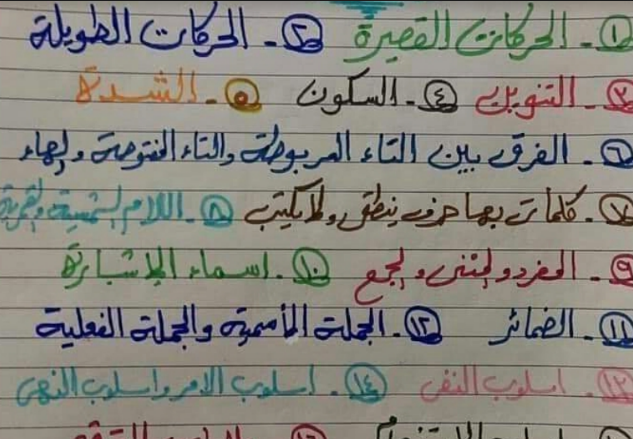 ١- الحركات القصيرة ٢- الحركات الطويلة
٣- التنوين ٤- السكون ٥- الشدة
٦- الفرق بين التاء المربوطة والتاء المفتوحة والهاء
٧- كلمات بها حرف ينطق ولا يكتب ٨- اللام الشمسية والقمرية
٩- المفرد والمثنى والجمع ١٠- اسماء الإشارة
١١- الضمائر ١٢- الجملة الأسمية والجملة الفعلية
١٣- اسلوب النفى ١٤- اسلوب الامر واسلوب النهى